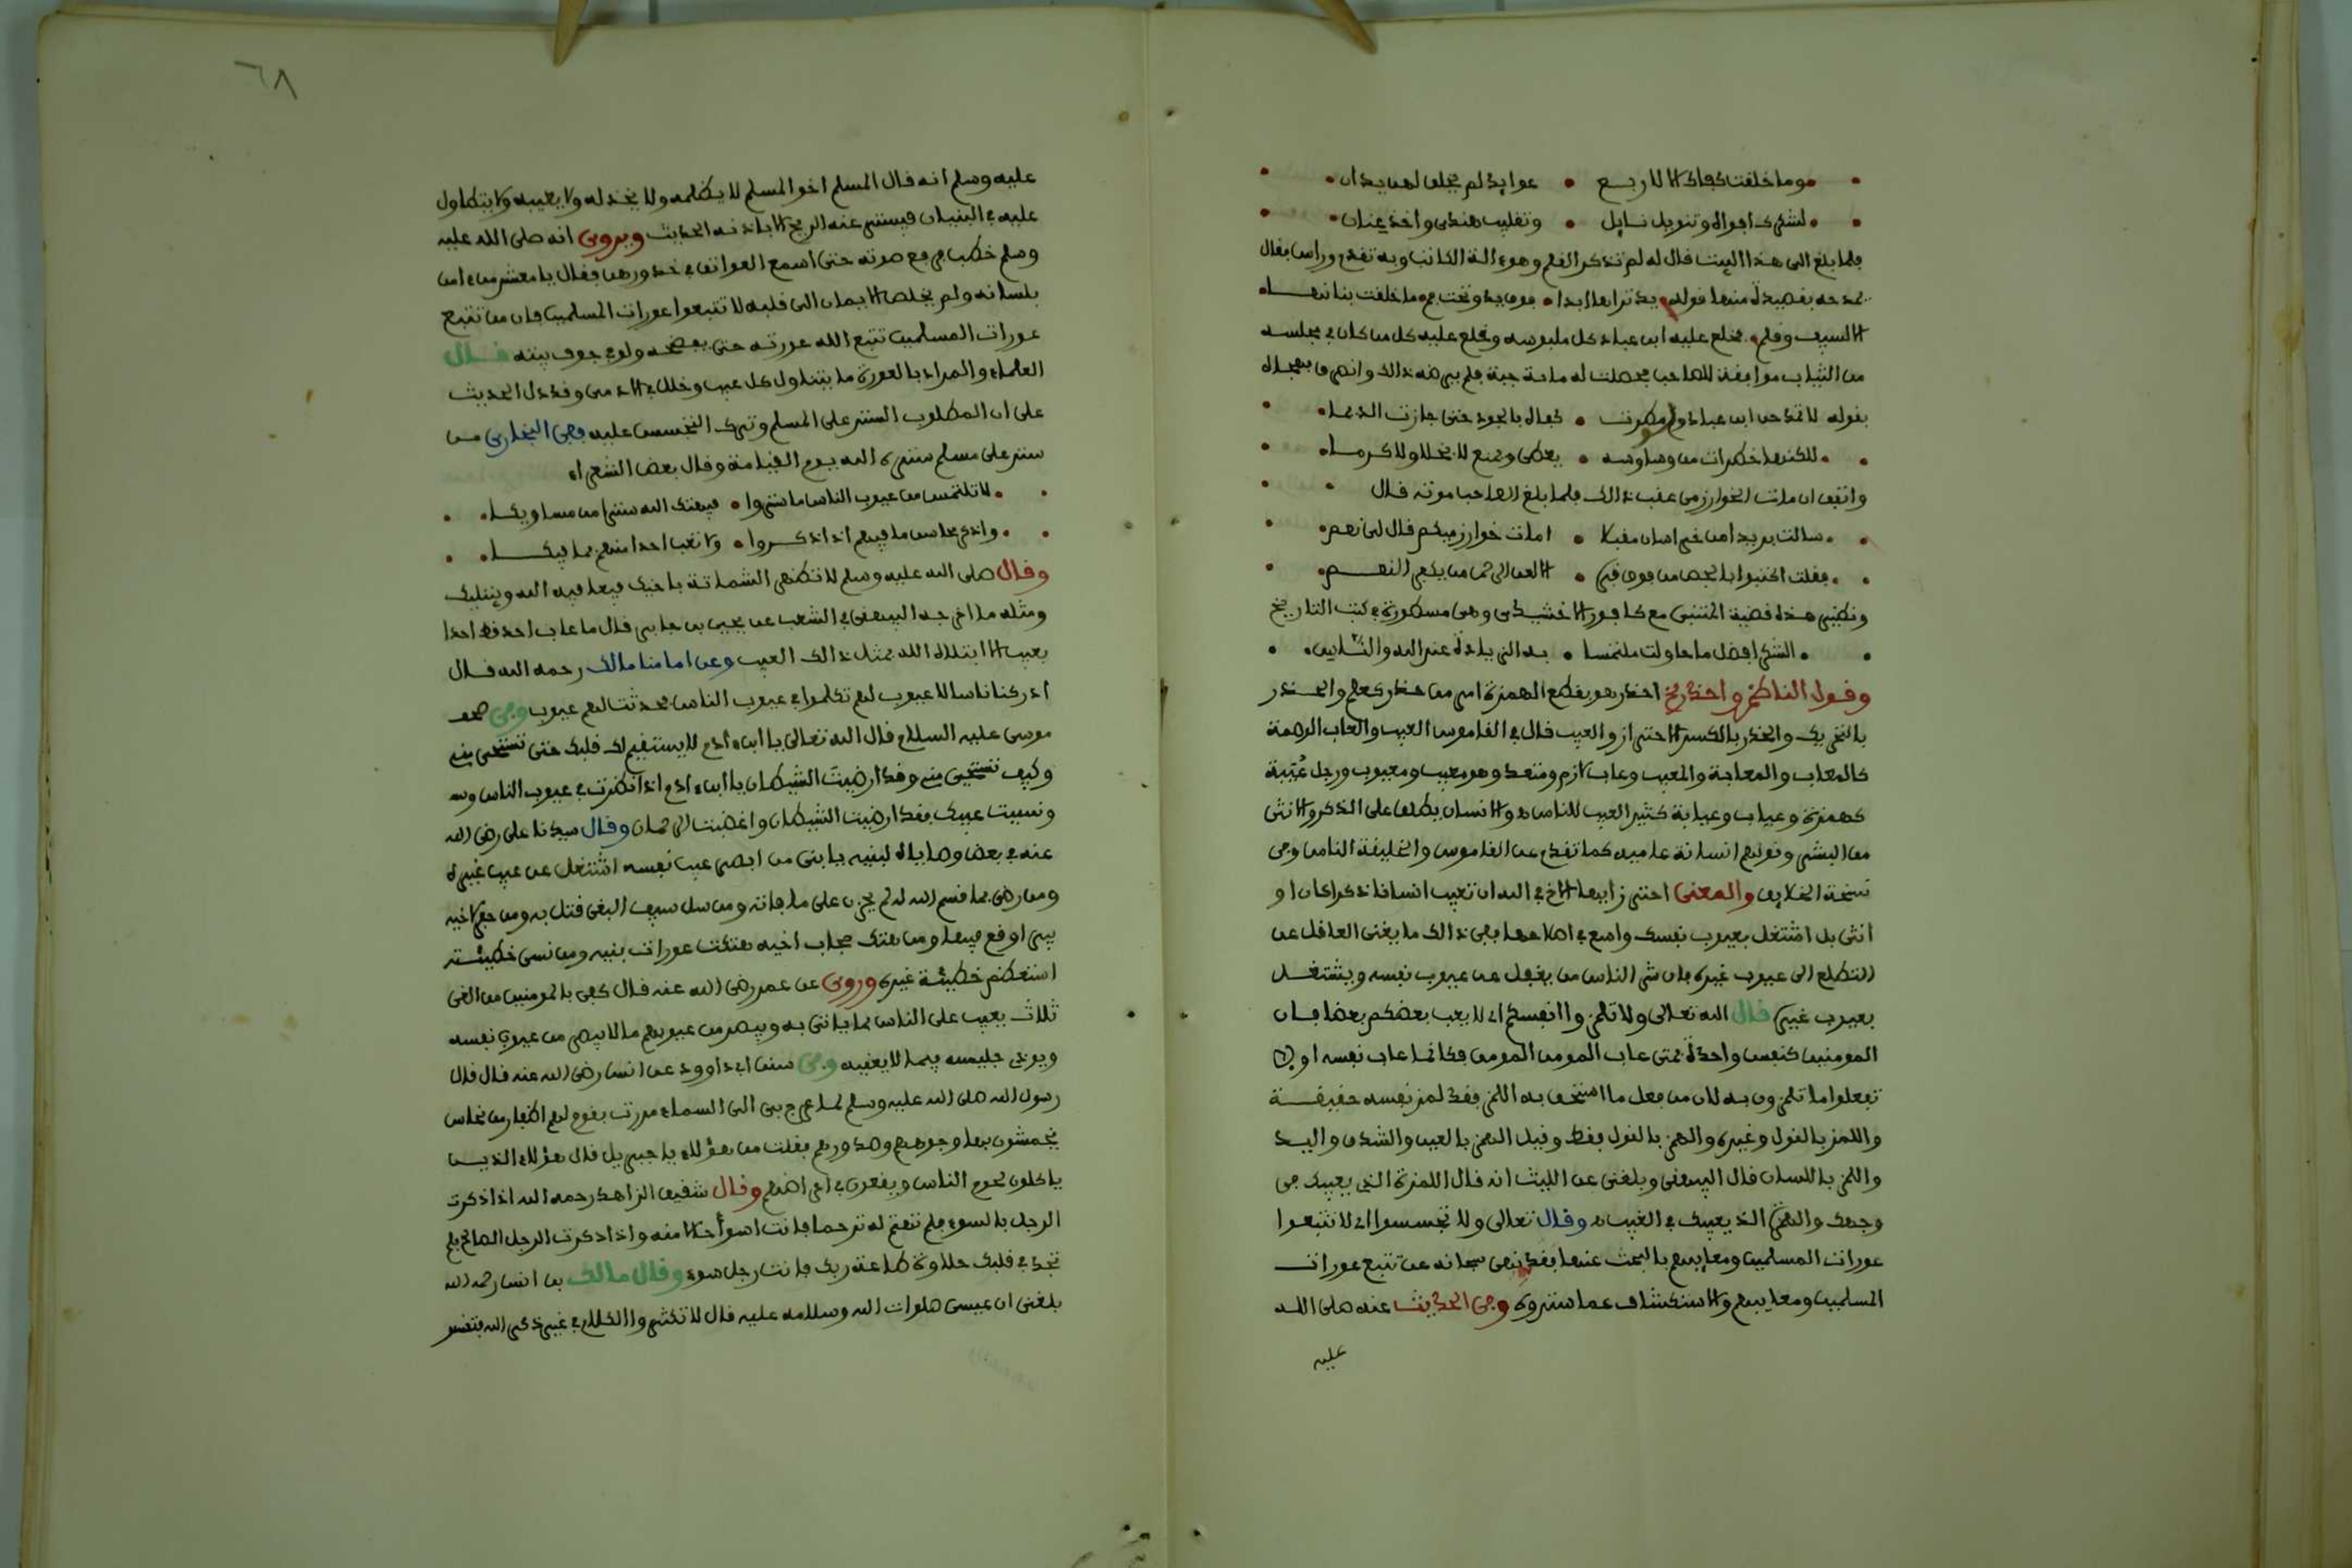 وما خلقت كفاك الا لاربع • عوايد لم يخلق لهن يدان
لشكر افواه وتنويل نايل • وتقليب هندي واخذ عنان
فلما بلغ الى هذا البيت قال له لم تذكر القلم وهو الة الكاتب وبه تقدم وراس فقال
يمدحه بقصيدة منها قوله يد تراها ابدا • فوق يد وتحت فم • ما خلقت بنانها
الا لسيف وقلم • فخلع عليه ابن عباد كل ملبوسه وخلع عليه كل من كان في مجلسه
من الثياب موافقة للصاحب فحصلت له ماية جبة فلم يرضه ذالك وانصرف بهجاه
بقوله لا تمدحن ابن عباد ولو مطرت • كفاه بالجود حتى جازت الديما
للكنها خطرات من وساوسه • يعطي ويمنع لا بخلا ولا كرما
واتفق ان مات الخوارزمي عقب ذالك فلما بلغ الصاحب موته قال
سالت بريدا من خراسان مقبلا • امات خوارزميكم قال لي نعم
فقلت اكتبوا بالجص من فوق قبره • الا لعن الرحمان من يكفر النعم
ونظير هذه قضية المتنبي مع كافور الاخشيدي وهي مسطورة في كتب التاريخ
الشكر افضل ما حاولت ملتمسا • به الزيادة عند الله والناس
وقول الناظم واحذر الخ احذر هو بقطع الهمزة امر من حذر كعلم والحذر
بالتحريك والحذر بالكسر الاحتراز والعيب قال في القاموس العيب والعاب الوصمة
كالمعاب والمعابة والمعيب وعاب لازم ومتعد وهو معيب ومعيوب ورجل عُيَبة
كهمزة وعياب وعيابة كثير العيب للناس ه والانسان يطلق على الذكر والانثى
من البشر وقولهم انسانة عامية كما تقدم عن القاموس والخليقة الناس وفي
نسخة الخلايق والمعنى احترز ايها الاخ في الله ان تعيب انسانا ذكرا كان او
انثى بل اشتغل بعيوب نفسك واسع في اصلاحها ففي ذالك ما يغني العاقل عن
التطلع الى عيوب غيره فان شر الناس من يغفل عن عيوب نفسه ويشتغل
بعيوب غيره قال الله تعالى ولا تلمزوا انفسكم اي لا يعب بعضكم بعضا فان
المومنين كنفس واحدة فمتى عاب المومن المومن فكانما عاب نفسه او لا
تفعلوا ما تلمزون به لان من فعل ما استحق به اللمز فقد لمز نفسه حقيقة
واللمز بالقول وغيره والهمز بالقول فقط وقيل الهمز بالعين والشدق واليد
واللمز باللسان قال البيهقي وبلغني عن الليث انه قال اللمزة الذي يعيبك في
وجهك والهمزة الذي يعيبك في الغيب ه وقال تعالى ولا تجسسوا اي لا تتبعوا
عورات المسلمين ومعايبهم بالبحث عنها فقد نهى سبحانه عن تتبع عورات
المسلمين ومعايبهم والاستكشاف عما ستروه وفي الحديث عنه صلى الله
عليه
٦٨
عليه وسلم انه قال المسلم اخو المسلم لا يظلمه ولا يخذله ولا يعيبه ولا يتطاول
عليه في البنيان فيستر عنه الريح الا باذنه الحديث ويروى انه صلى الله عليه
وسلم خطب فرفع صوته حتى اسمع العواتق في خدورهن فقال يا معشر من ءامن
بلسانه ولم يخلص الايمان الى قلبه لا تتبعوا عورات المسلمين فان من تتبع
عورات المسلمين تتبع الله عورته حتى يفضحه ولو في جوف بيته قال
العلماء والمراد بالعورة ما يتناول كل عيب وخلل في الادمي وقد دل الحديث
على ان المطلوب الستر على المسلم وترك التجسس عليه ففي البخاري من
ستر على مسلم ستره الله يوم القيامة وقال بعض الشعراء
لا تلتمس من عيوب الناس ما ستروا • فيهتك الله سترا من مساويكا
واذكر محاسن ما فيهم اذا ذكروا • ولا تعب احدا منهم بما فيكا
وقال صلى الله عليه وسلم لا تظهر الشماتة باخيك فيعافيه الله ويبتليك
ومثله ما اخرجه البيهقي في الشعب عن يحيى بن جابر قال ما عاب احد قط احدا
بعيب الا ابتلاه الله بمثل ذالك العيب وعن امامنا مالك رحمه الله قال
ادركنا ناسا لا عيوب لهم تكلموا في عيوب الناس فحدثت لهم عيوب وفي صحف
موسى عليه السلام قال الله تعالى يا ابن ءادم لا يستقيم لك قلبك حتى تستحيي مني
وكيف تستحيي مني وقد ارضيت الشيطان يا ابن ءادم اذا نظرت في عيوب الناس
ونسيت عيبك فقد ارضيت الشيطان واغضبت الرحمان وقال سيدنا علي رضي الله
عنه في بعض وصاياه لبنيه يا بني من ابصر عيب نفسه اشتغل عن عيب غيره
ومن رضي بما قسم الله له لم يحزن على ما فاته ومن سل سيف البغي قتل به ومن حفر لاخيه
بيرا وقع فيها ومن هتك حجاب اخيه هتكت عورات بنيه ومن نسي خطيئته
استعظم خطيئة غيره وروي عن عمر رضي الله عنه قال كفى بالمومنين من الغي
ثلاث يعيب على الناس بما ياتي به ويبصر من عيوبهم ما لا يبصر من عيوب نفسه
ويوذي جليسه فيما لا يعنيه وفي سنن ابي داوود عن انس رضي الله عنه قال قال
رسول الله صلى الله عليه وسلم لما عرج بي الى السماء مررت بقوم لهم اظفار من نحاس
يخمشون بها وجوههم وصدورهم فقلت من هؤلاء يا جبريل قال هؤلاء الذين
ياكلون لحوم الناس ويقعون في اعراضهم وقال شقيق الزاهد رحمه الله اذا ذكرت
الرجل بالسوء فلم تهتم له ترحما فانت اسوأ حالا منه واذا ذكرت الرجل الصالح فلم
تجد في قلبك حلاوة طاعة ربك فانت رجل سوء وقال مالك بن انس رحمه الله
بلغني ان عيسى صلوات الله وسلامه عليه قال لا تكثروا الكلام في غير ذكر الله فتقسو